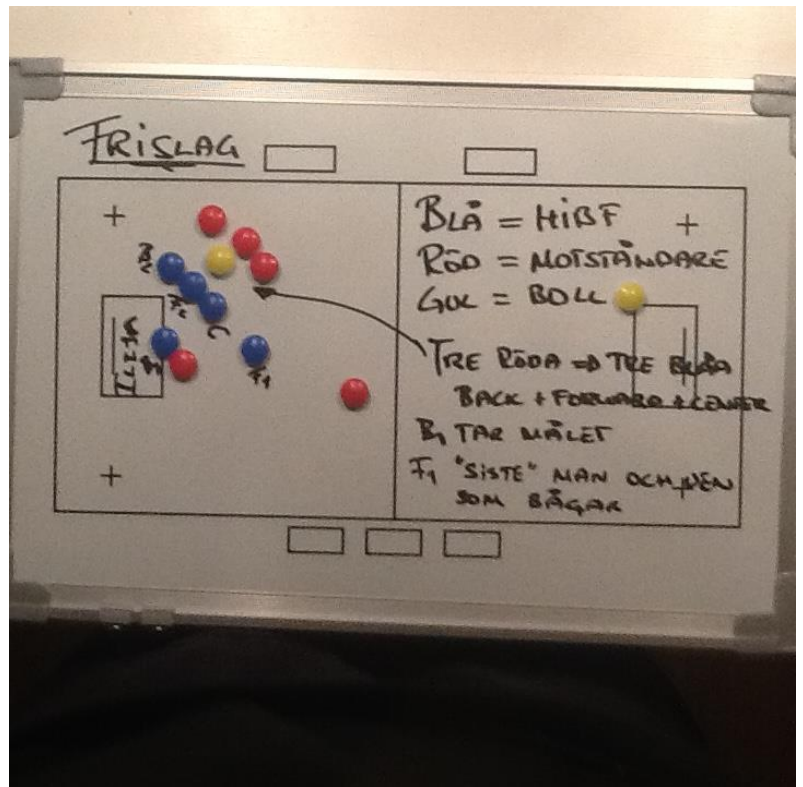 FRISLAG
BLÅ = HIBF
RÖD = MOTSTÅNDARE
GUL = BOLL
TRE RÖDA => TRE BLÅA
BACK + FORWARD + CENTER
B1 TAR MÅLET
F1 "SISTE" MAN OCH DEN
SOM BÅGAR
B2
F2
C
B1
F1